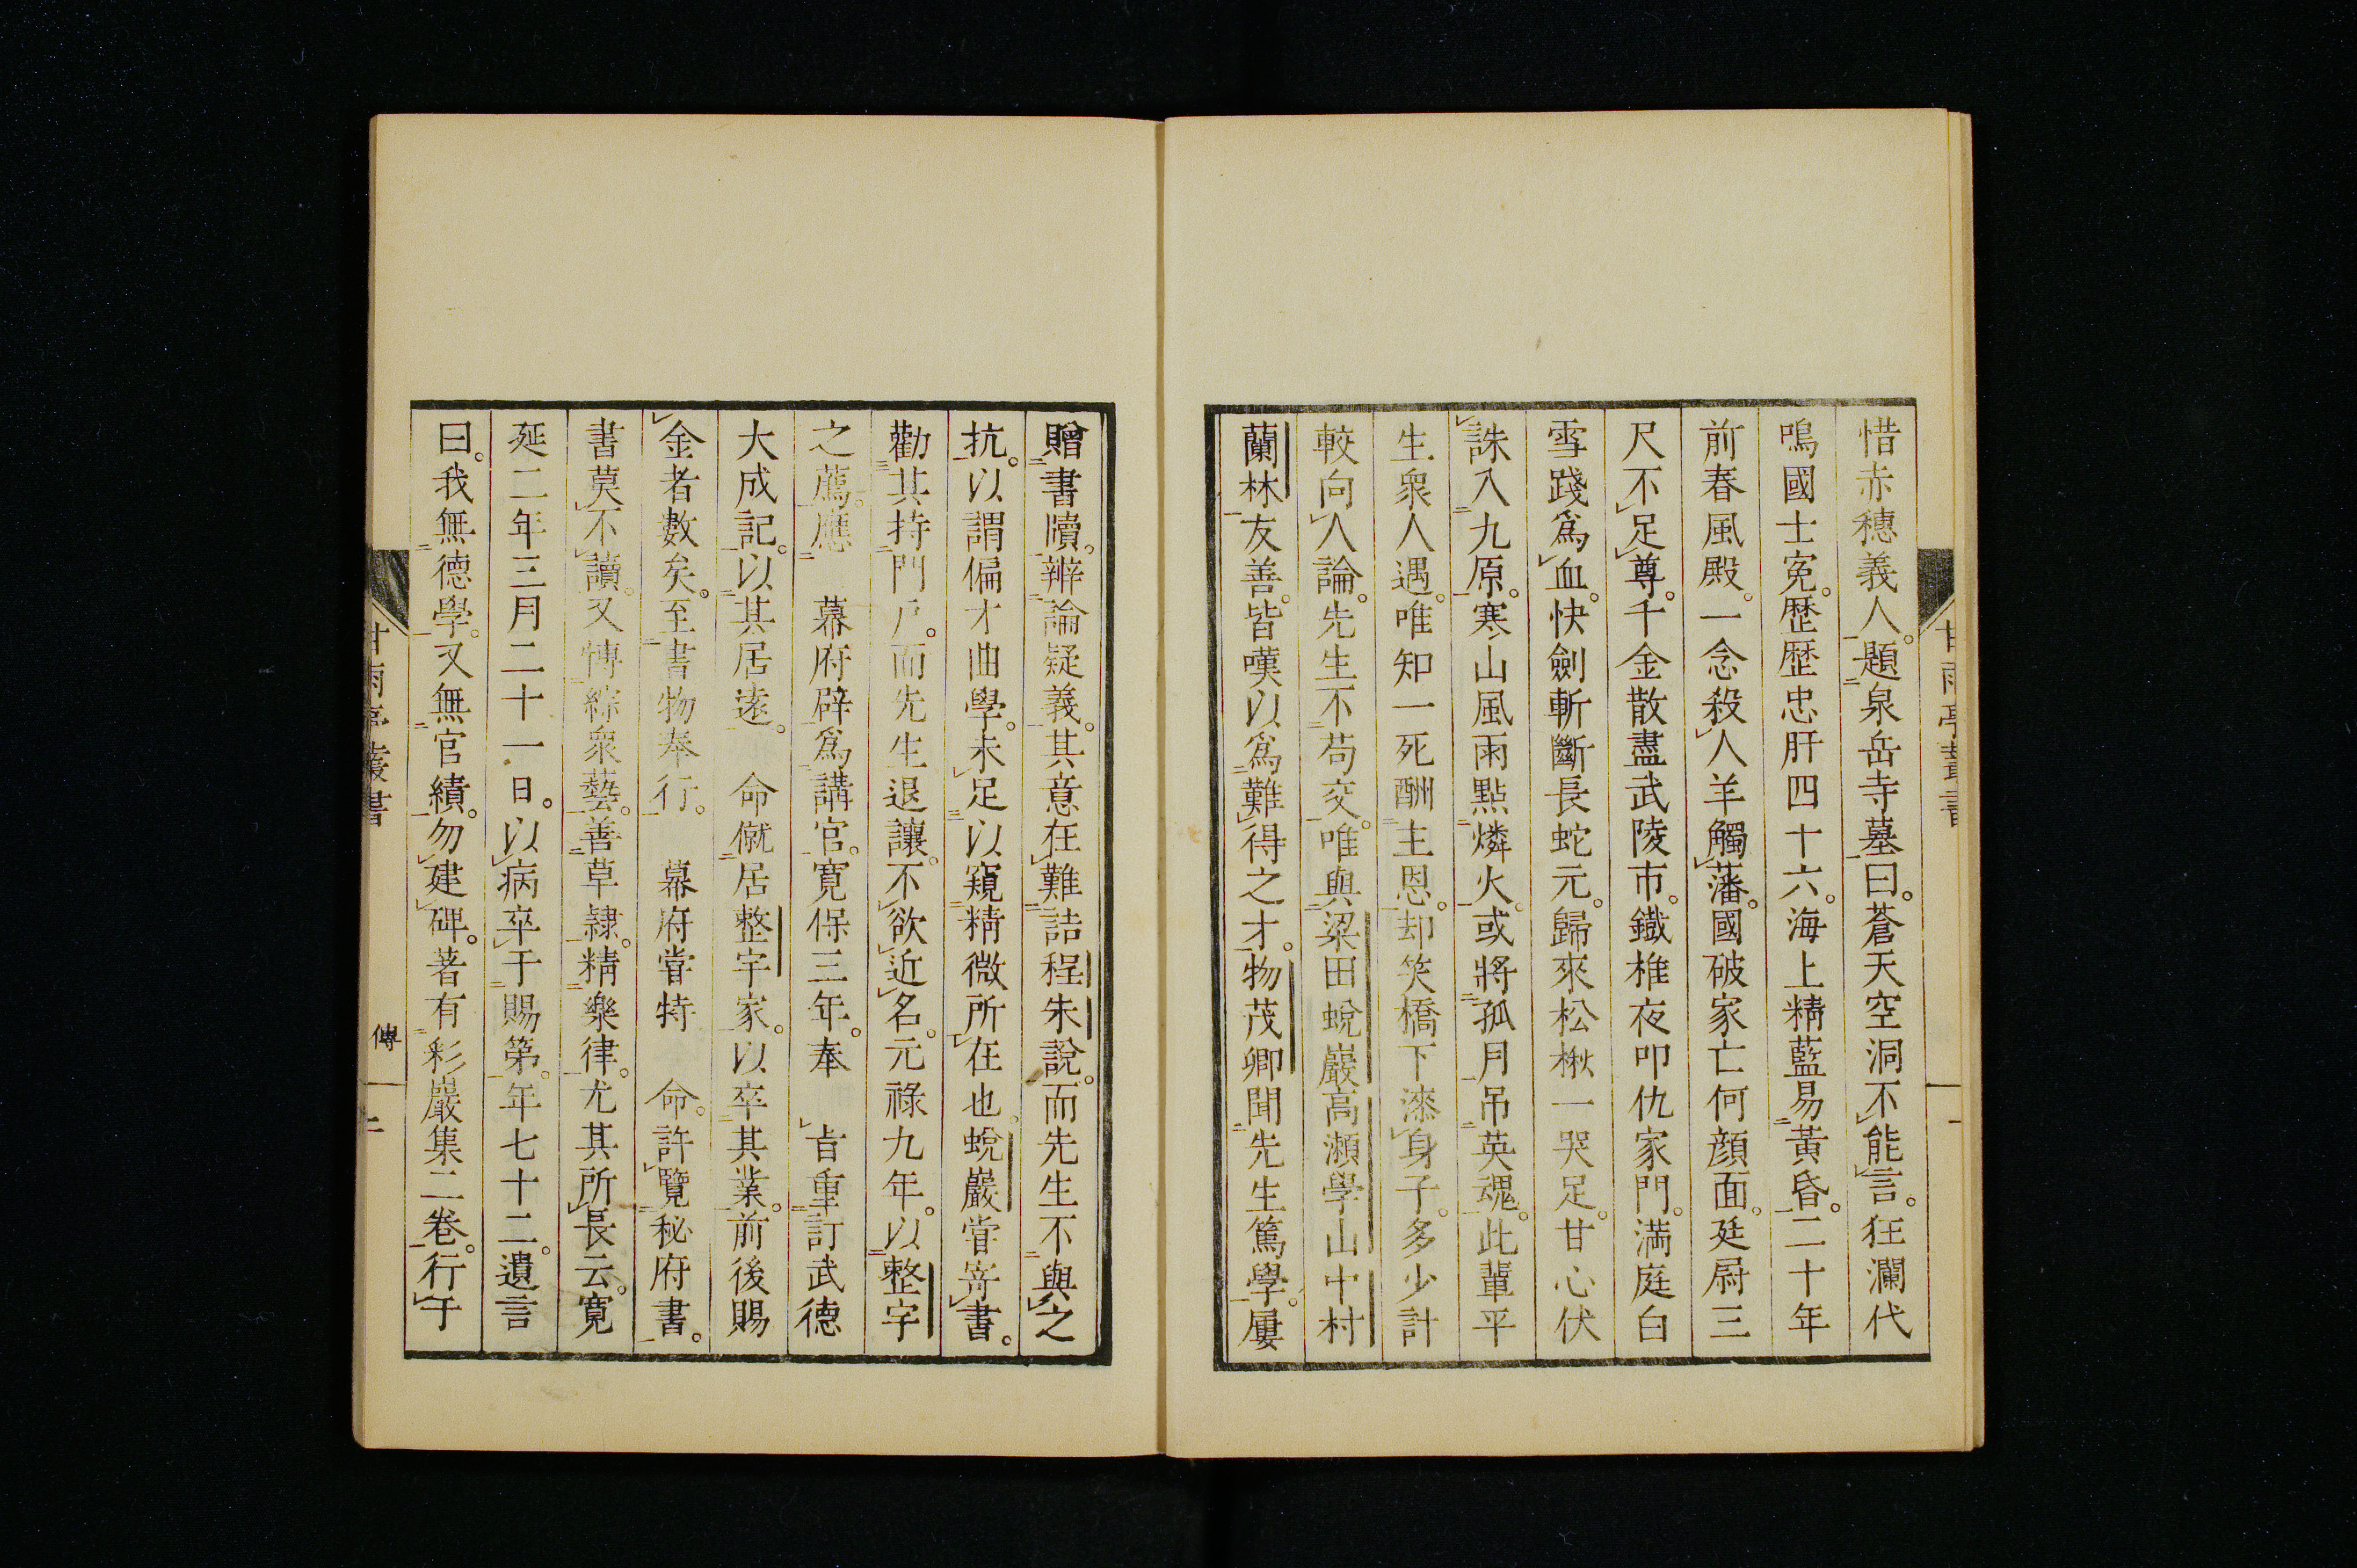 惜赤穗義人。題泉岳寺墓曰。蒼天空洞不能言。狂瀾代
鳴國士寃。歷歷忠肝四十六。海上精藍易黃昏。二十年
前春風殿。一念殺人羊觸藩。國破家亡何顏面。廷尉三
尺不足尊。千金散盡武陵市。鐵椎夜叩仇家門。滿庭白
雪踐爲血。快劍斬斷長蛇元。歸來松楸一哭足。甘心伏
誅入九原。寒山風雨點燐火。或將孤月吊英魂。此輩平
生衆人遇。唯知一死酬主恩。却笑橋下漆身子。多少計
較向人論。先生不苟交。唯與梁田蛻巖高瀨學山中村
蘭林友善。皆嘆以爲難得之才。物茂卿聞先生篤學。屢
甘雨亭叢書
一
贈書牘。辨論疑義。其意在難詰程朱說。而先生不與之
抗。以謂偏才曲學。未足以窺精微所在也。蛻巖嘗寄書。
勸其持門戶。而先生退讓。不欲近名。元祿九年。以整宇
之薦。應 幕府辟爲講官。寬保三年。奉 旨重訂武德
大成記。以其居遠。 命僦居整宇家。以卒其業。前後賜
金者數矣。至書物奉行。 幕府嘗特 命。許覽秘府書。
書莫不讀。又博綜衆藝。善草隷。精樂律。尤其所長云。寬
延二年三月二十一日。以病卒于賜第。年七十二。遺言
曰。我無德學。又無官績。勿建碑。著有彩巖集二卷。行于
甘雨亭叢書
傳
二